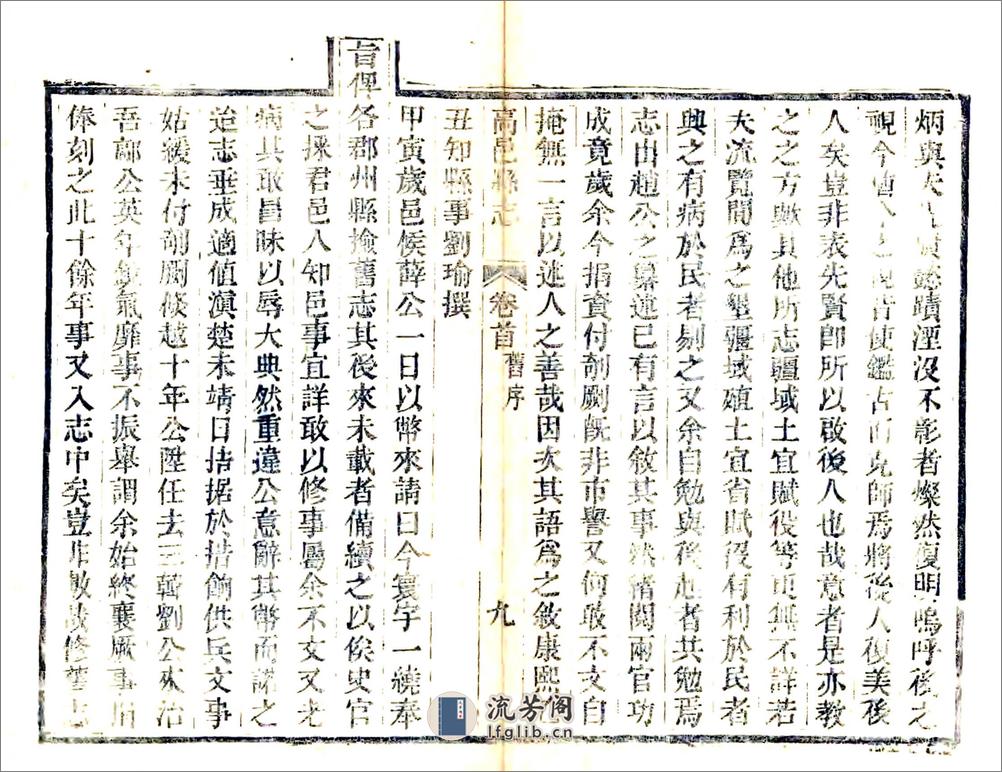 炳與夫先賢懿蹟湮沒不彰者燦然復明嗚呼後之
視今猶今之視昔使鑑古而克師焉將後人復美後
人矣豈非表先賢卽所以啟後人也哉意者是亦敎
之之方歟其他所志疆域土宜賦役等項無不詳若
夫流覽間爲之墾疆域殖土宜省賦役有利於民者
興之有病於民者剔之又余自勉與後起者共勉焉
志出趙公之纂述已有言以敘其事然稽閱兩官功
成竟歲余今捐資付剞劂旣非市譽又何敢不文自
掩無一言以述人之善哉因次其語爲之敘康熙
高邑縣志 卷首 舊序 九
丑知縣事劉瑜撰
甲寅歲邑侯薛公一日以幣來請曰今寰宇一統奉
旨俾各郡州縣掄舊志其後來未載者備續之以俟史官
之採君邑人知邑事宜詳敢以修事屬余不文又老
病其敢冒昧以辱大典然重違公意辭其幣而諾之
迨志垂成適值滇楚未靖日拮据於措餉供兵文事
姑緩未付剞劂倏越十年公陞任去三韓劉公來治
吾鄗公英年銳氣靡事不振舉謂余始終襄厥事用
俸刻之此十餘年事又入志中矣豈非數哉修舊志
流芳阁
lfglib.cn